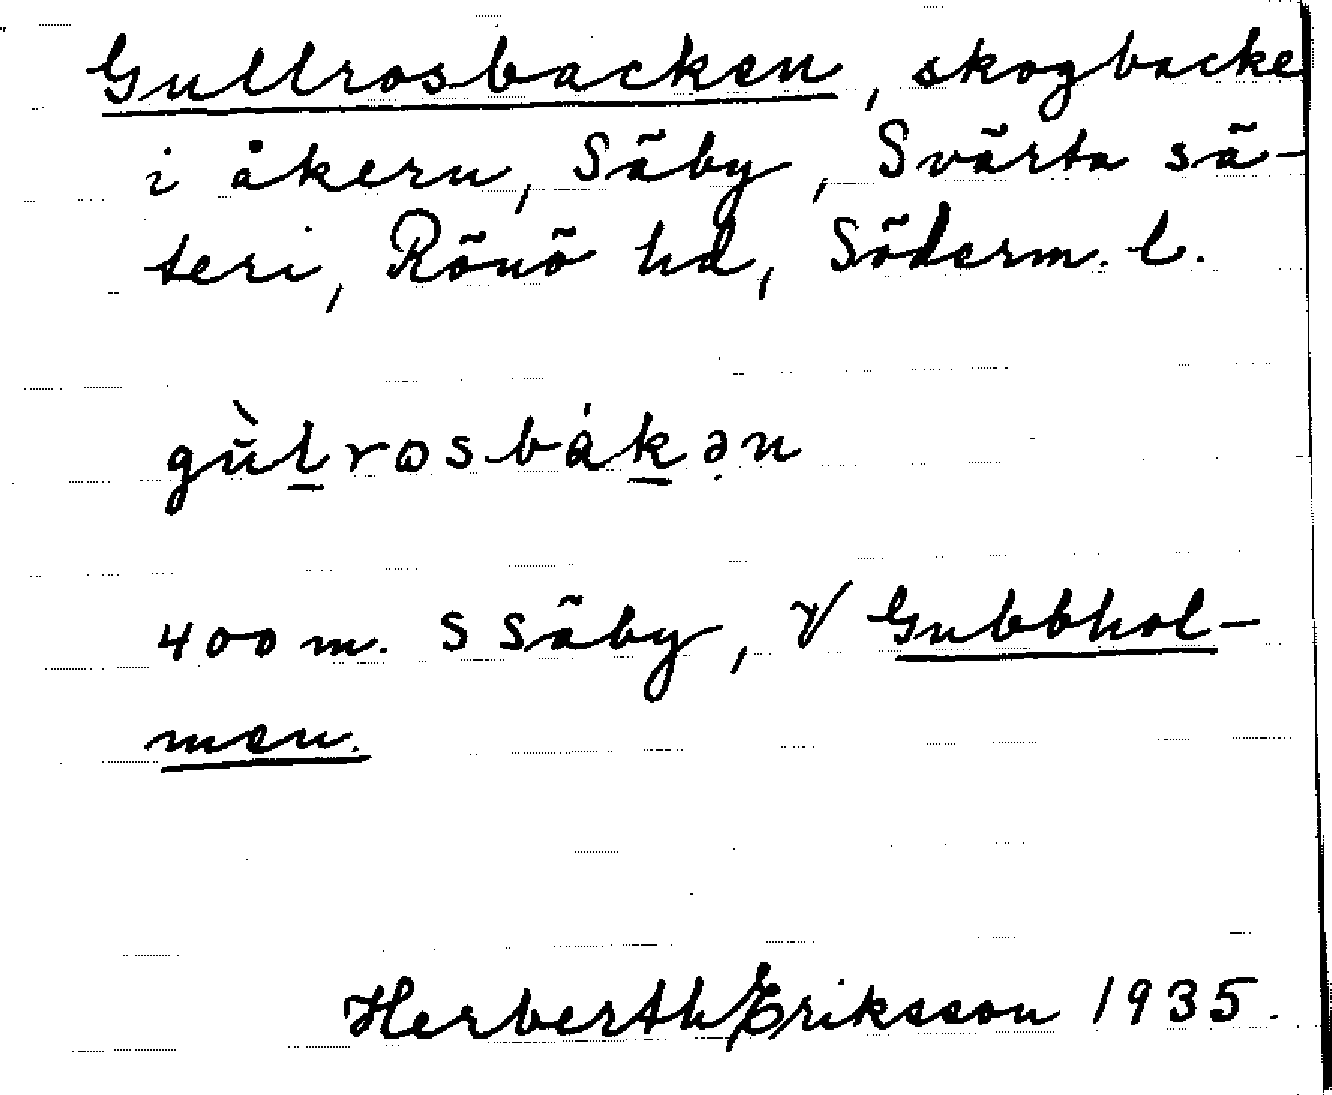 Gullrosbacken, skogbacke
i åkern, Säby, Svärta sä-
teri, Rönö hd, Söderm. l.
gùl̲rosbák̲ən
400 m. S Säby, V Gubbhol-
men.
Herberth Eriksson 1935.